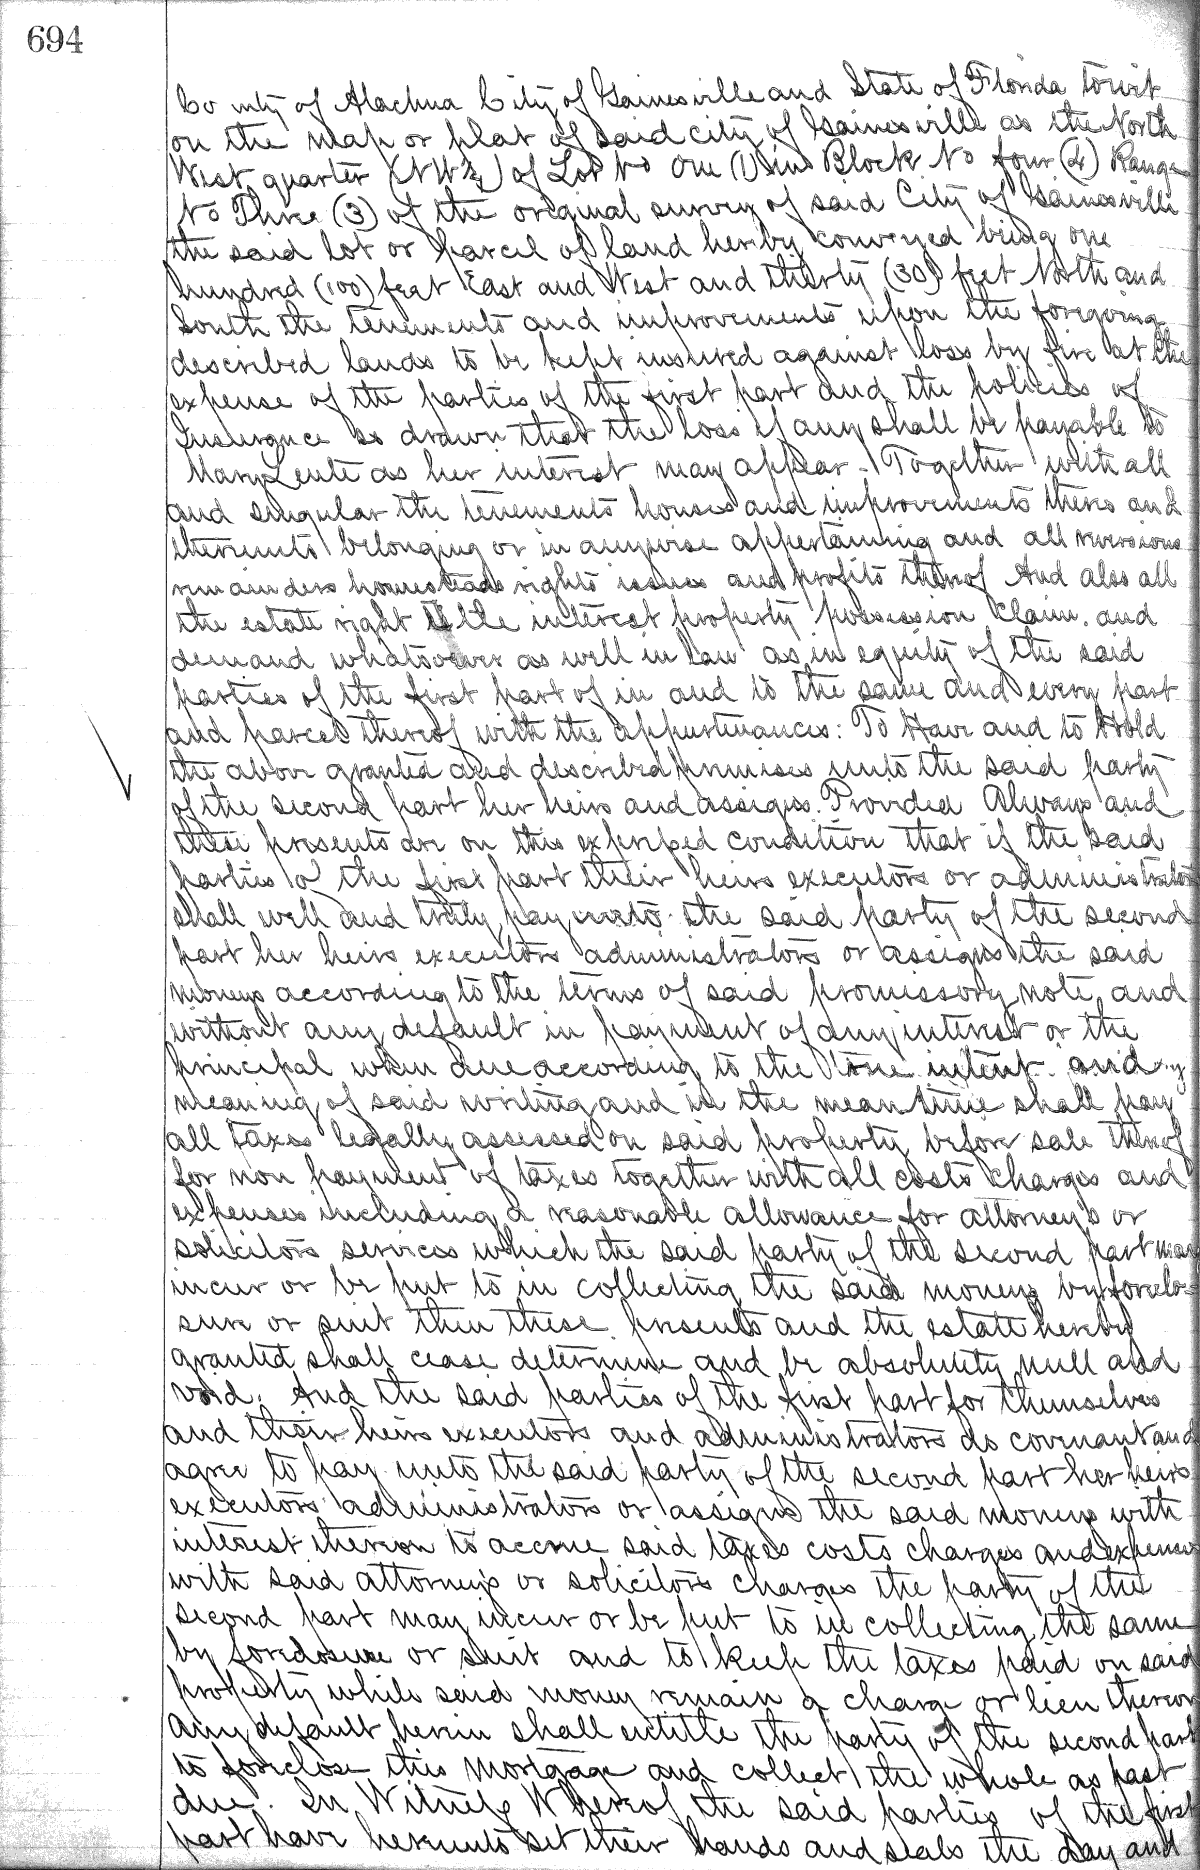 694
County of Alachua City of Gainesville and State of Florida towit
on the map or plat of said city of Gainesville as the North
West quarter (NW¼) of Lot No One (1) in Block No four (4) Range
No Three (3) of the original survey of said City of Gainesville
the said lot or parcel of land herby conveyed being one
hundred (100) feet East and West and thirty (30) feet North and
South the tenements and improvements upon the foregoing
described lands to be kept insured against loss by fire at the
expense of the parties of the first part and the policies of
Insurance so drawn that the loss if any shall be payable to
Mary as her interest may appear. Together with all
and singular the tenements houses and improvements theron and
thereunto belonging or in anywise appertaining and all reversions
remainders homesteads rights issues and profits therof And also all
the estate right title interest property possession claim and
demand whatsoever as well in law as in equity of the said
parties of the first part of in and to the same and every part
and parcel therof with the appurtenances: To Have and to Hold
the above granted and described premises unto the said party
of the second part her heirs and assigns. Provided Always and
these presents are on this express condition that if the said
parties of the first part their heirs executors or administrators
shall well and truly pay unto the said party of the second
part her heirs executors administrators or assigns the said
moneys according to the terms of said promissory note and
without any default in payment of any interest or the
principal when due according to the true intent and
meaning of said writing and in the mean time shall pay
all taxes legally assessed on said property before sale therof
for non payment of taxes together with all costs charges and
expenses including a reasonable allowance for attorneys or
solicitors services which the said party of the second part may
incur or be put to in collecting the said moneys by foreclo-
sure or suit then these presents and the estate hereby
granted shall cease determine and be absolutely null and
void. And the said parties of the first part for themselves
and their heirs executors and administrators do covenant and
agree to pay unto the said party of the second part her heirs
executors administrators or assigns the said moneys with
interest thereon to accrue said taxes costs charges and expenses
with said attorneys or solicitors charges the party of the
second part may incur or be put to in collecting the same
by foreclosure or suit and to keep the taxes paid on said
property while said money remain a charge or lien thereon
Any default herein shall entitle the party of the second part
to foreclose this mortgage and collect the whole as past
due. In Witness Whereof the said parties of the first
part have hereunto set their hands and seals the day and